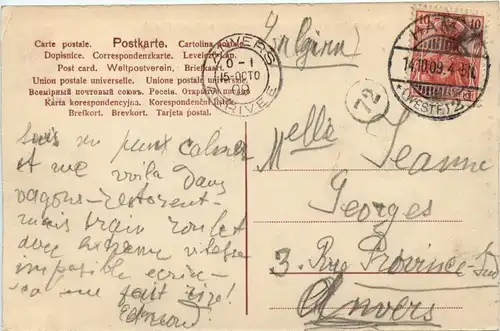 Postkarte.
Carte postale. Cartolina postale.
Dopisnice. Correspondenzkarte. Levelező-lap.
Post card. Weltpostverein. Briefkaart.
Union postale universelle. Unione postale universale.
Всемірный почтовый союзъ. Россія. Открытое письмо.
Karta korespondencyjna. Korespondenční lístek.
Brefkort. Brevkort. Tarjeta postal.
ANVERS
6-1
15 OCTO
09
ARRIVÉE
72
10 10
14.10.09.4-5N.
* (WESTF.) 2
Suis un peu calmé
et me voila dans
wagon-restaurant
mais train roulant
avec extreme vitesse
impossible écrire
ça me fait rire!
Melle Jeanne
Georges
3. Rue Province-Sud
Anvers